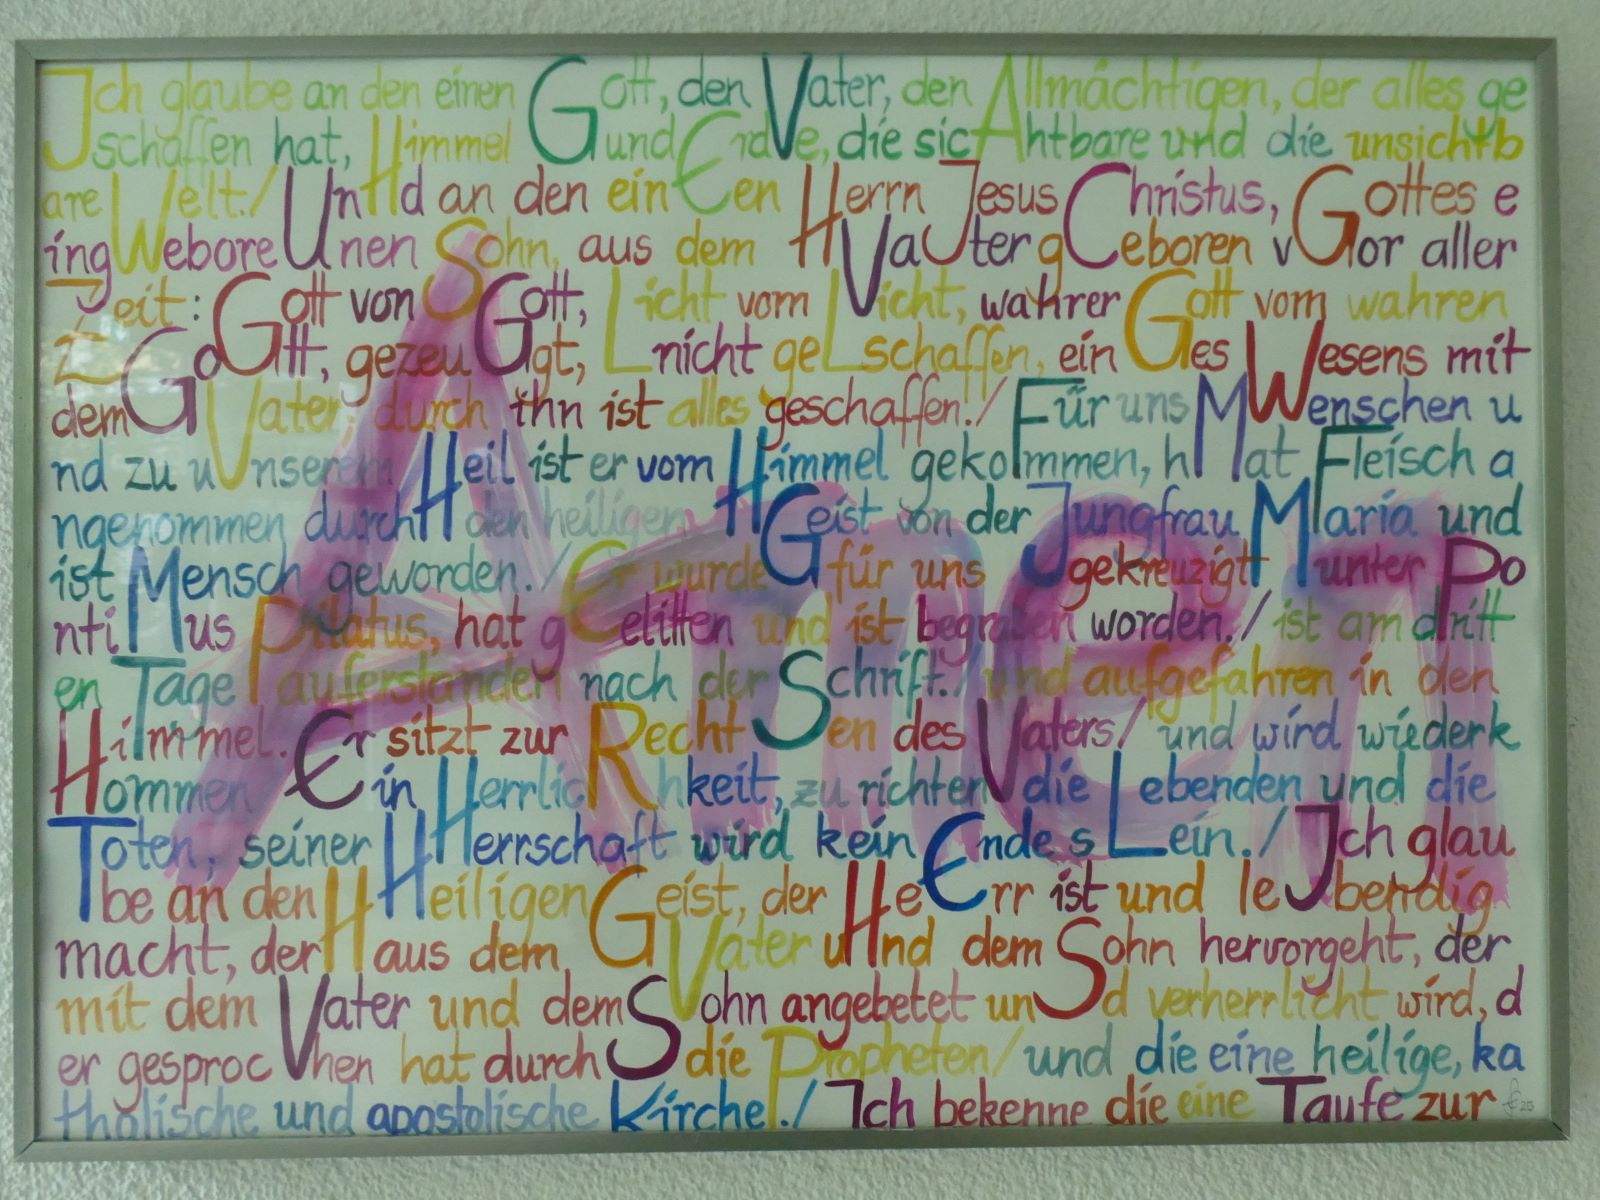 Ich glaube an den einen Gott, den Vater, den Allmächtigen, der alles ge
schaffen hat, Himmel und Erde, die sichtbare und die unsichtb
are Welt./ Und an den einen Herrn Jesus Christus, Gottes e
ingeborenen Sohn, aus dem Vater geboren vor aller
Zeit: Gott von Gott, Licht vom Licht, wahrer Gott vom wahren
Gott, gezeugt, nicht geschaffen, ein es Wesens mit
dem Vater, durch ihn ist alles geschaffen./ Für uns Menschen u
nd zu unserem Heil ist er vom Himmel gekommen, hat Fleisch a
ngenommen durch den heiligen Geist von der Jungfrau Maria und
ist Mensch geworden./ Er wurde für uns gekreuzigt unter Po
ntius Pilatus, hat gelitten und ist begraben worden./ ist am dritt
en Tage auferstanden nach der Schrift./ und aufgefahren in den
Himmel. Er sitzt zur Rechten des Vaters/ und wird wiederk
ommen in Herrlichkeit, zu richten die Lebenden und die
Toten, seiner Herrschaft wird kein Ende sein./ Ich glau
be an den Heiligen Geist, der Herr ist und lebendig
macht, der aus dem Vater und dem Sohn hervorgeht, der
mit dem Vater und dem Sohn angebetet und verherrlicht wird, d
er gesprochen hat durch die Propheten/ und die eine heilige, ka
tholische und apostolische Kirche./ Ich bekenne die eine Taufe zur
Amen